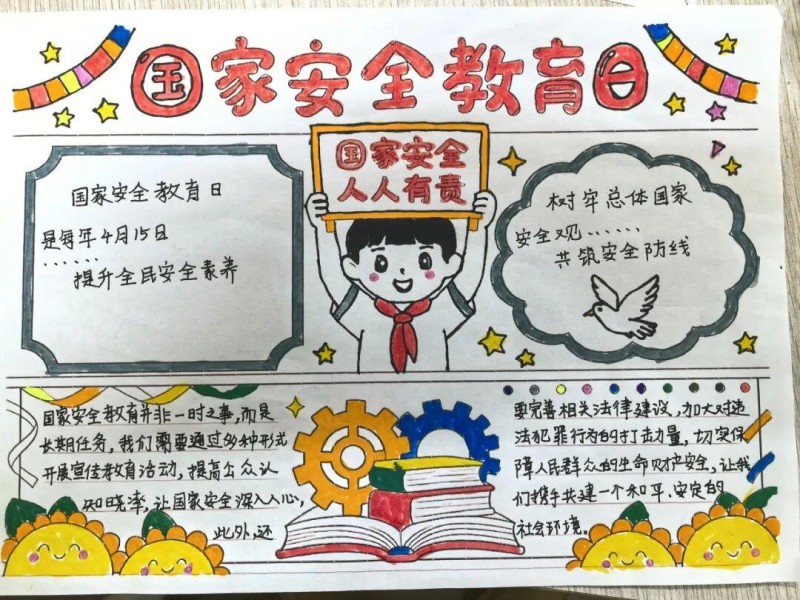 国家安全教育日
国家安全
人人有责
国家安全教育日
是每年4月15日
......
提升全民安全素养
树牢总体国家
安全观......
共筑安全防线
国家安全教育并非一时之事,而是
长期任务,我们需要通过多种形式
开展宣传教育活动,提高公众认
知晓率,让国家安全深入人心,
此外,还
要完善相关法律建设,加大对违
法犯罪行为的打击力量,切实保
障人民群众的生命财产安全,让我
们携手共建一个和平、安定的
社会环境。